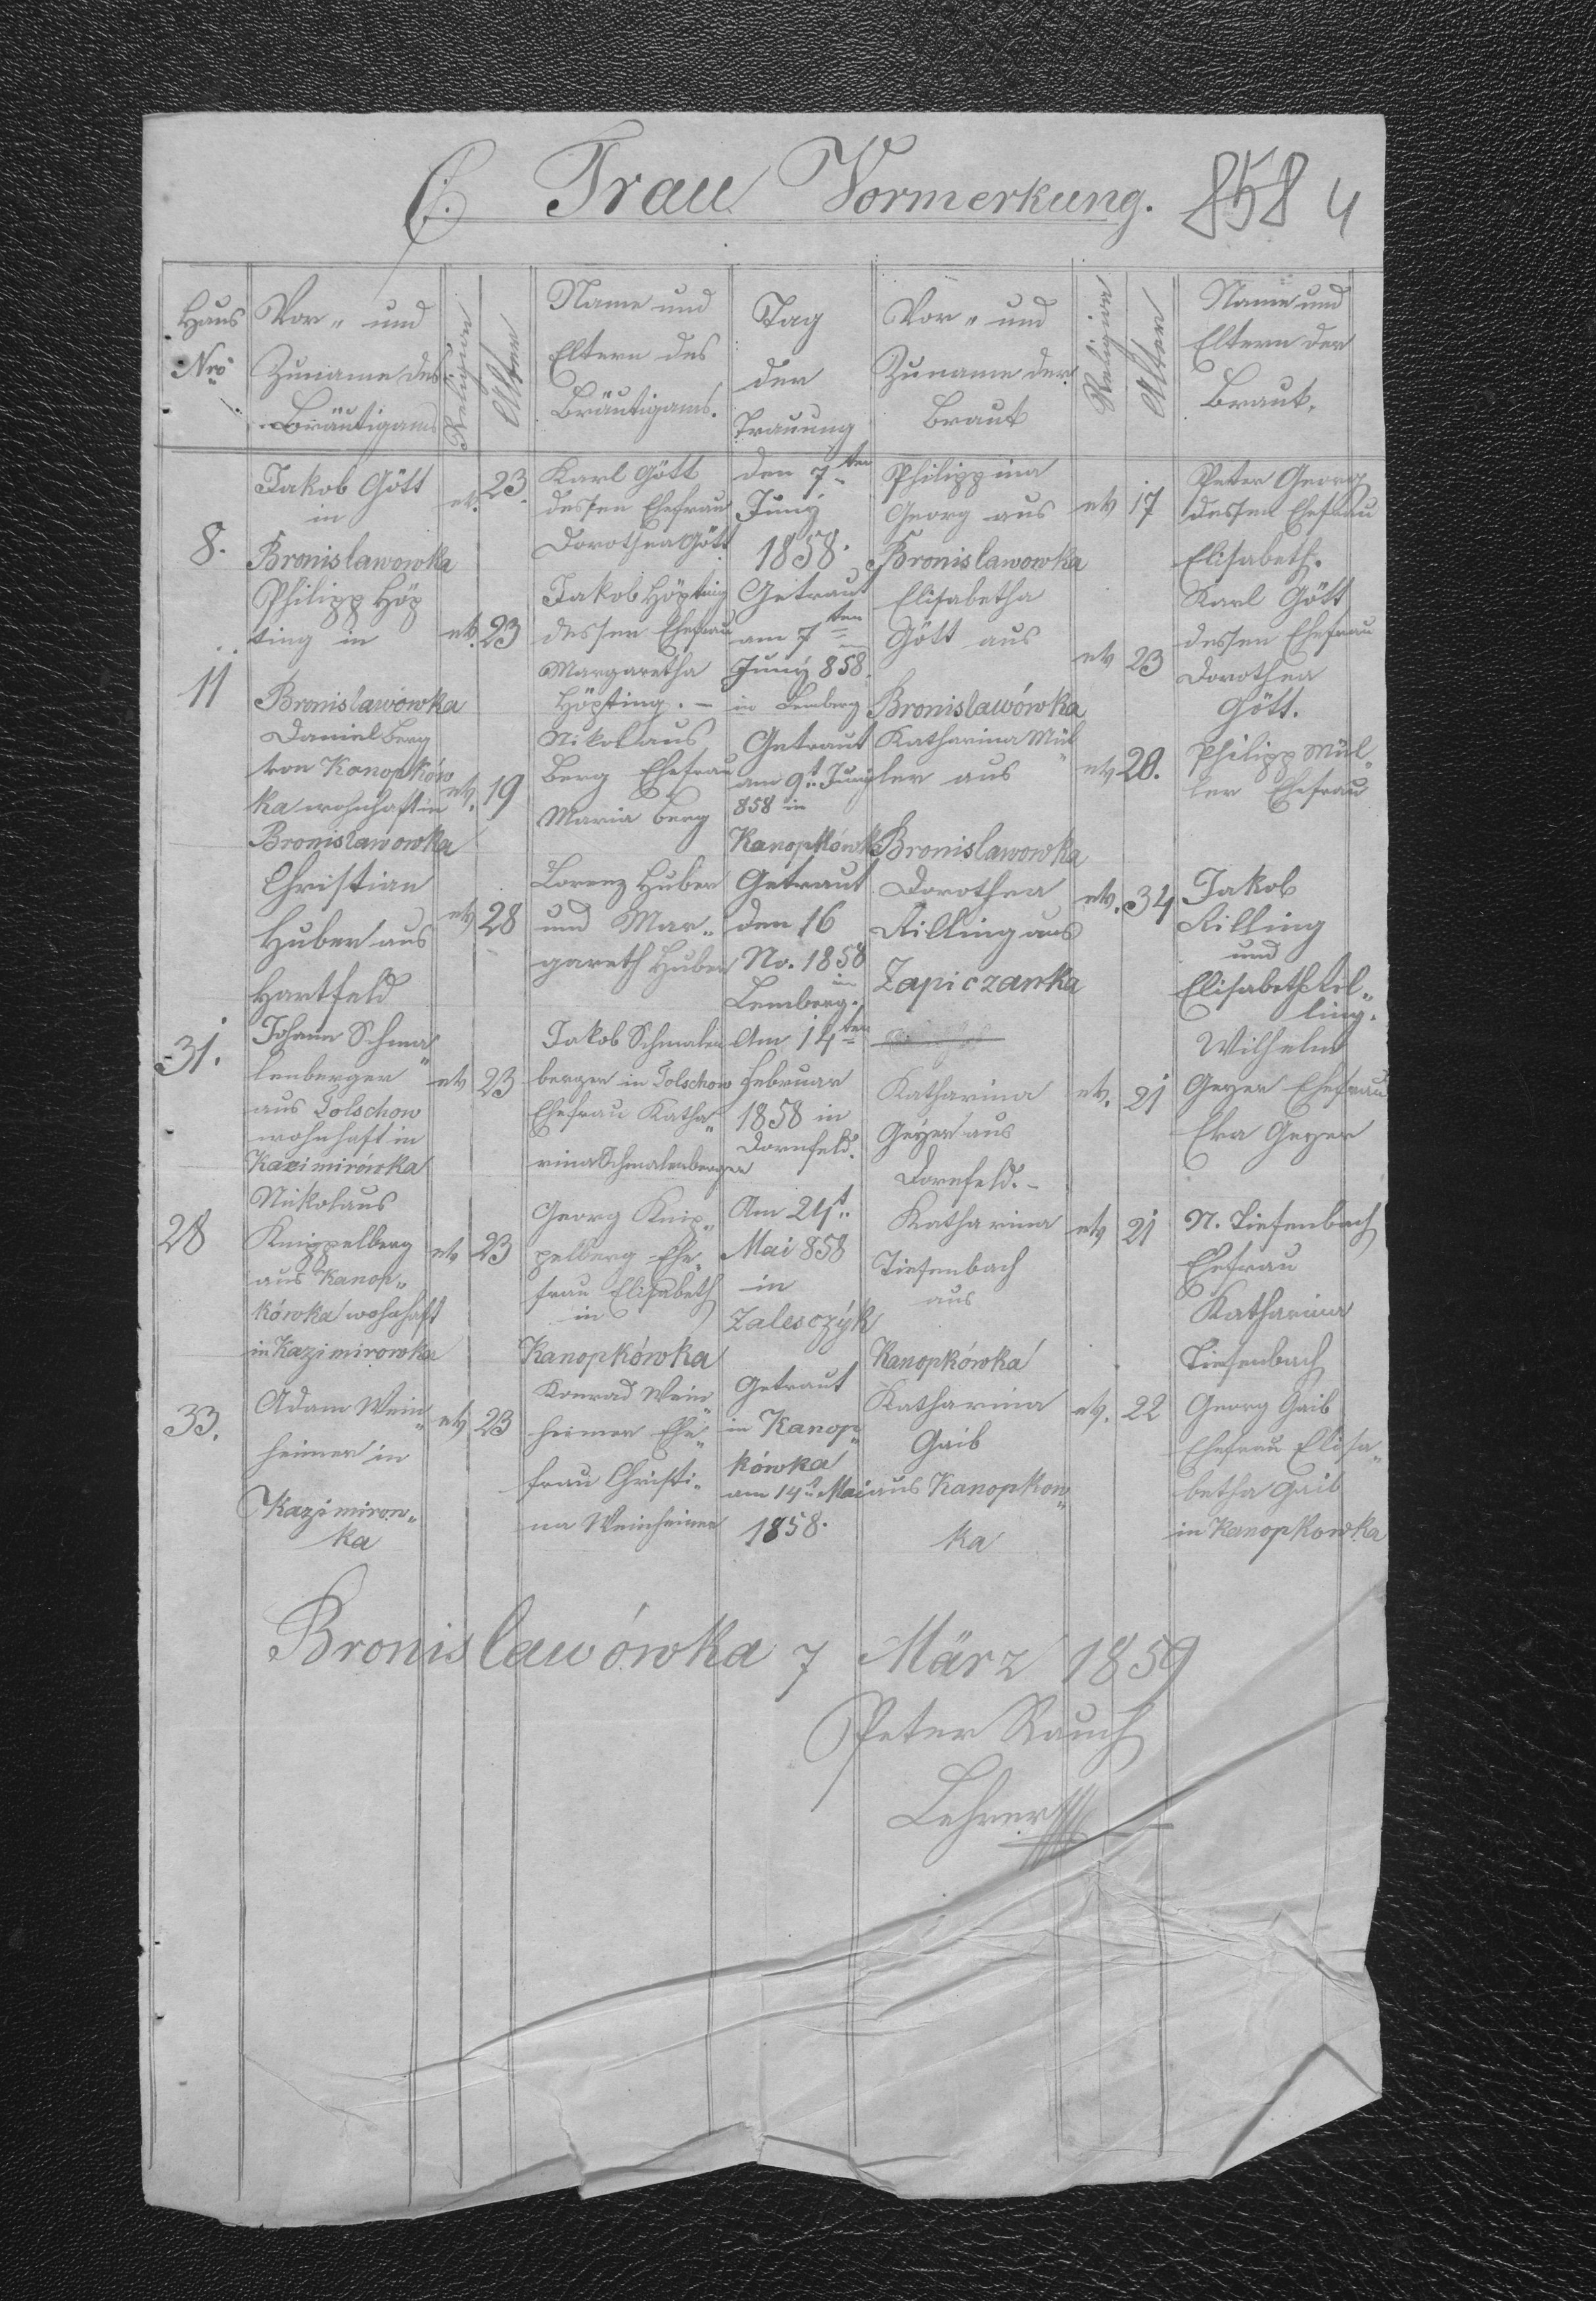 C. Trau Vormerkung. 858 4
Haus Nro
Vor- und Zuname des Bräutigams
Religion
Alter
Name und Eltern des Bräutigams.
Tag der Trauung
Vor- und Zuname der Braut
Religion
Alter
Name und Eltern der Braut.
8.
Jakob Gött
in
Bronislawowka
ev.
23.
Karl Gött
dessen Ehefrau
Dorothea Gött
den 7ten
Juny
1858.
Philippina
Georg aus
Bronislawowka
ev
17
Peter Georg
dessen Ehefrau
Elisabeth.
11
Philipp Höp
ting in
Bronislawówka
ev.
23
Jakob Höpting
dessen Ehefrau
Margaretha
Höpting. –
Getraut
am 7ten
Juny 858.
in Lemberg
Elisabetha
Gött aus
Bronislawówka
ev
23
Karl Gött
dessen Ehefrau
Dorothea
Gött.
Daniel Berg
von Kanopków
ka wohnhaft in
Bronislawowka
ev.
19
Nikolaus
Berg Ehefrau
Maria Berg
Getraut
am 9t. Juny
858 in
Kanopkówk
Katharina Mül„
ler aus
Bronislawowka
ev
20.
Philipp Mül„
ler Ehefrau
Christian
Huber aus
Hartfeld
ev
28
Lorenz Huber
und Mar„
gareth Huber
Getraut
den 16
No. 1858
in
Lemberg.
Dorothea
Rilling aus
Zapiczanka
ev.
34
Jakob
Rilling
und
Elisabeth Ril„
ling.
31.
Johann Schma„
lenberger
aus Dolschow
wohnhaft in
Kazimirówka
ev
23
Jakob Schmalen
berger in Dolschow
Ehefrau Katha„
rina Schmalenberger
Am 14ten
Februar
1858 in
Dornfeld.
Katharina
Geyer aus
Dornfeld. –
ev.
21
Wilhelm
Geyer Ehefrau
Eva Geyer
28
Nikolaus
Knippelberg
aus Kanop„
kówka wohnhaft
in Kazimirowka
ev
23
Georg Knip„
pelberg Ehe„
frau Elisabeth
in
Kanopkówka
Am 24t.
Mai 858
in
Zalesczÿk
Katharina
Tiefenbach
aus
Kanopkówka
ev
21
N. Tiefenbach
Ehefrau
Katharina
Tiefenbach
33.
Adam Wein„
heimer in
Kazimirow„
ka
ev
23
Konrad Wein„
heimer Ehe„
frau Christi„
na Weinheimer
Getraut
in Kanop„
kówka
am 14t. Mai
1858.
Katharina
Gaib
aus Kanopkow„
ka
ev.
22
Georg Gaib
Ehefrau Elisa„
betha Gaib
in Kanopkowka
Bronislawówka 7 März 1859
Peter Rauch
Lehrer